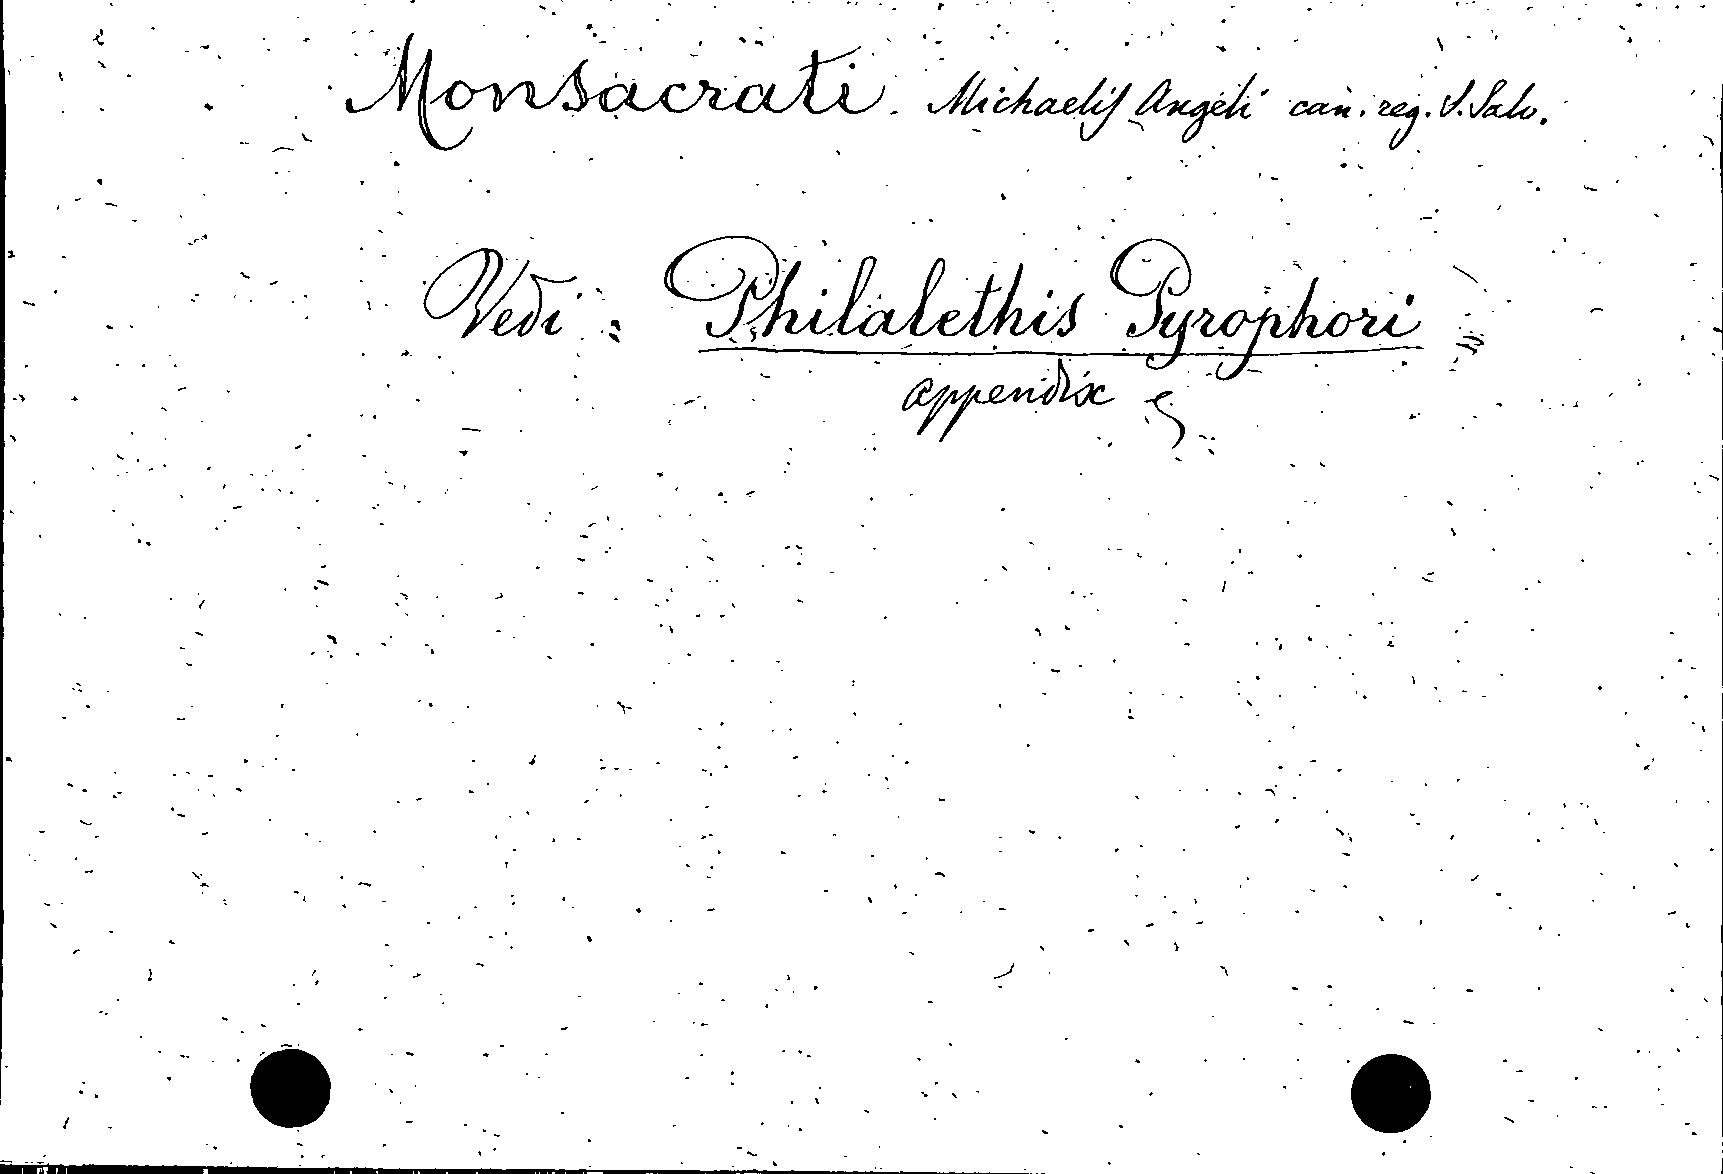 Monsacrati. Michaelis Angeli can. reg. S. Salv.
Vedi: Philalethis Pyrophori
appendix